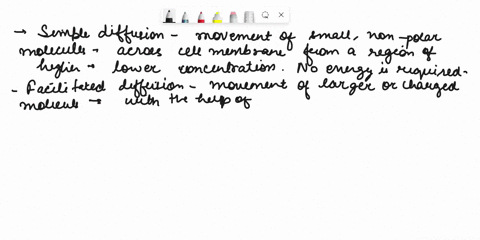 → Simple diffusion - movement of small, non-polar
molecules - across cell membrane from a region of
higher - lower concentration. No energy is required.
- Facilitated diffusion - movement of larger or charged
molecule → with the help of